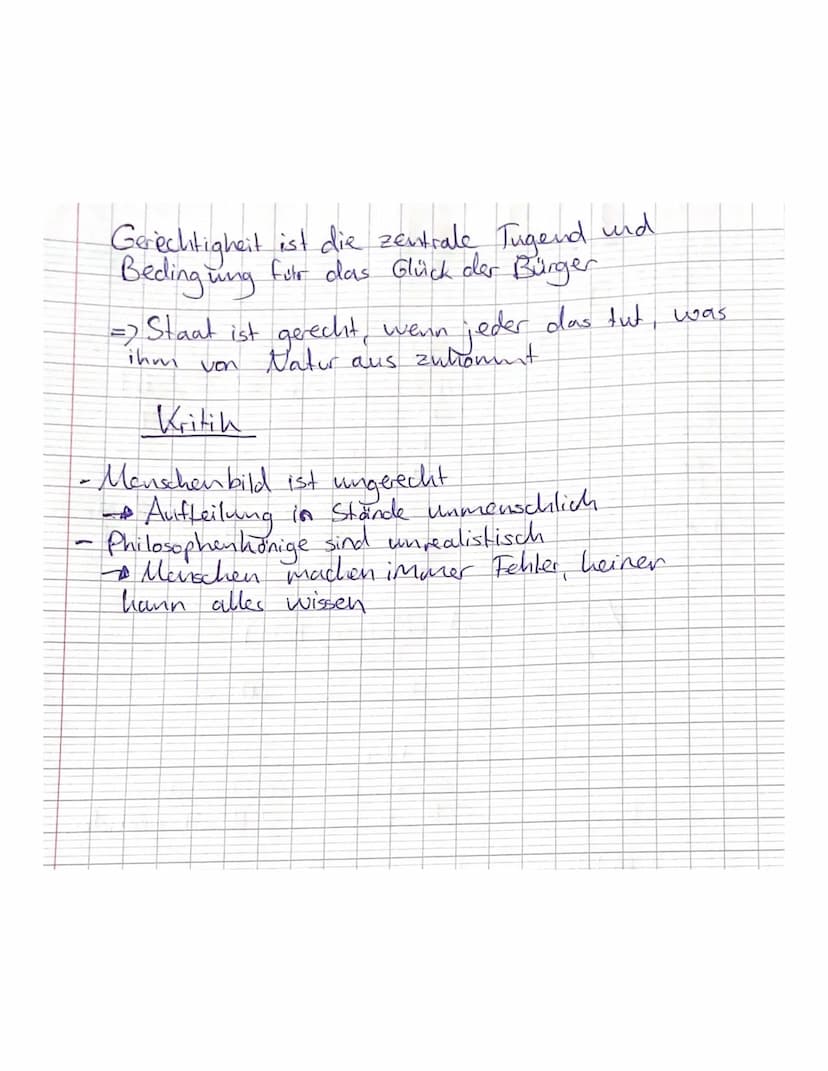 Gerechtigkeit ist die zentrale Tugend und
Bedingung für das Glück der Bürger
=> Staat ist gerecht, wenn jeder das tut, was
ihm von Natur aus zukommt
Kritik
- Menschenbild ist ungerecht
→ Aufteilung in Stände unmenschlich
- Philosophenkönige sind unrealistisch
→ Menschen machen immer Fehler, keiner
kann alles wissen